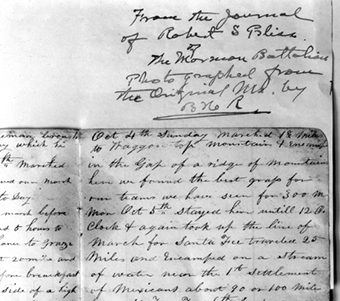 From the Journal
of Robert S Bliss
of
The Mormon Battalion
Photographed from
the Original Ms. by
B H R
Oct 4th Sunday Marched 18 Miles
to Waggon top Mountain & Encamp
in the Gap of a ridge of Mountains
here we found the best grass for
our teams we have seen for 300 M
Mon Oct 5th stayed here untill 12 O
Clock & again took up the line of
March for Santa Fee traveled 25
Miles and Encamped on a stream
of water near the 1st settlement
of Mexicans about 90 or 100 Miles
brought
which is
th Marched
our march
to Day
march before
hours to
to Graze
20 miles and
before breakfast
side of a high